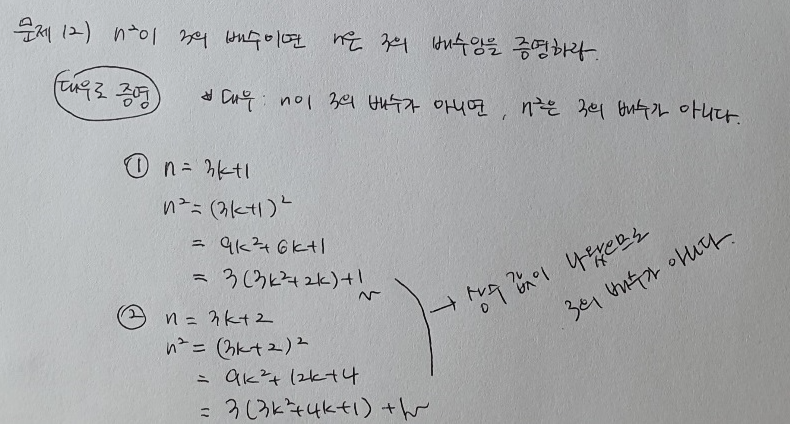 문제 12) n²이 3의 배수이면 n은 3의 배수임을 증명하라.
대우로 증명
* 대우 : n이 3의 배수가 아니면, n²은 3의 배수가 아니다.
① n = 3k+1
n² = (3k+1)²
= 9k²+6k+1
= 3(3k²+2k)+1
② n = 3k+2
n² = (3k+2)²
= 9k²+12k+4
= 3(3k²+4k+1)+1
→ 값이 남으므로
3의 배수가 아니다.